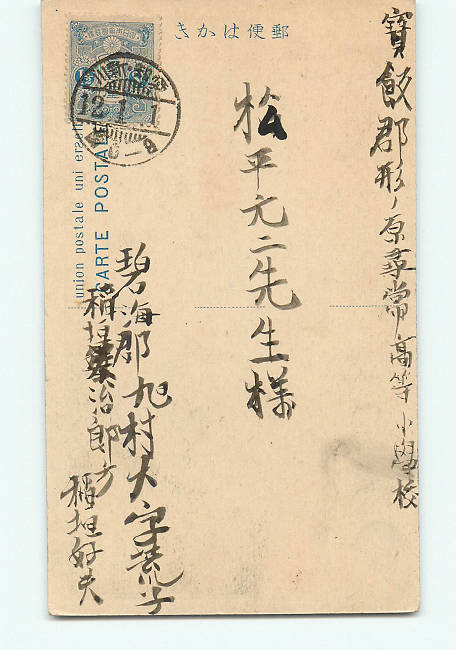 郵便はかき
union postale uni
CARTE POSTALE
寶飯郡形ノ原尋常高等小學校
松平元二先生様
碧海郡旭村大字荒子
稲垣治郎方
稲垣好夫